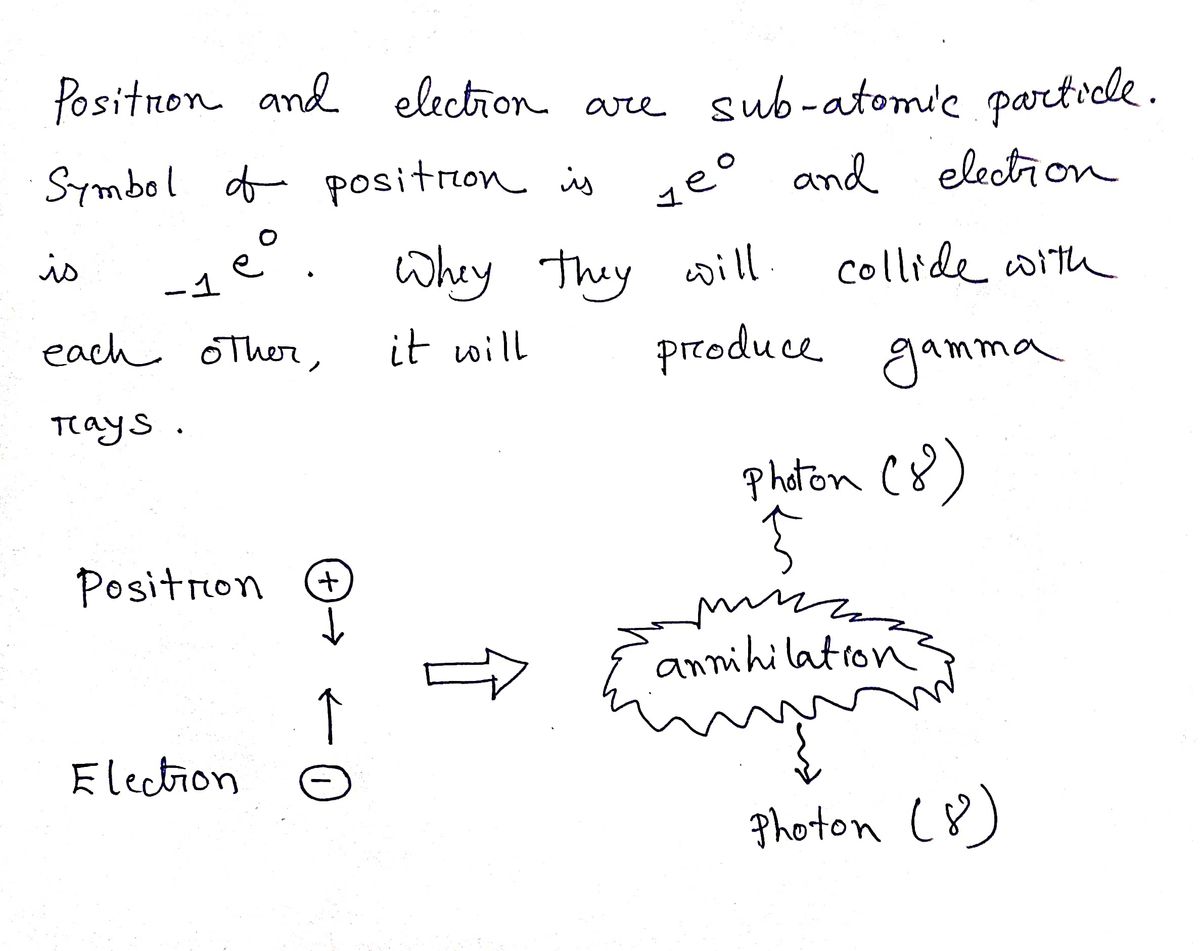 Positron and electron are sub-atomic particle.
Symbol of positron is ₁e⁰ and electron
is ₋₁e⁰. Whey they will collide with
each other, it will produce gamma
rays.
Photon (γ)
Positron +
annihilation
Electron −
Photon (γ)